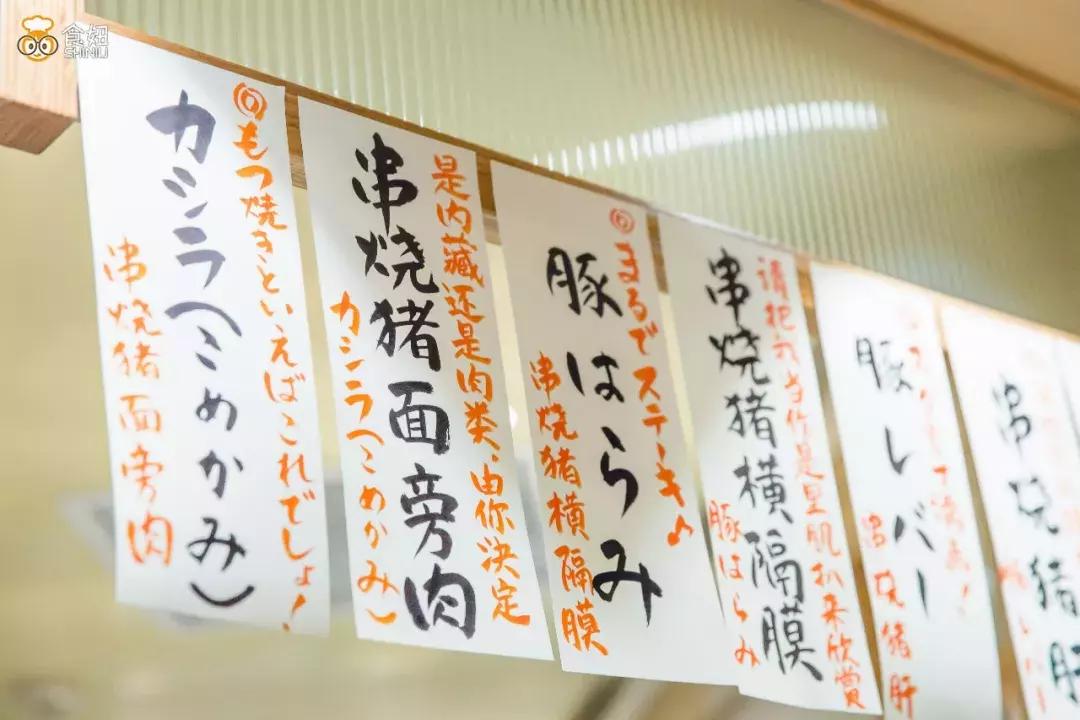 食妞
SHINIU
もつ焼きといえばこれでしょ!
カシラ(こめかみ)
串烧猪面旁肉
是内藏还是肉类、由你决定
串烧猪面旁肉
カシラ(こめかみ)
まるでステーキ♪
豚はらみ
串烧猪横隔膜
请把
当作是
肌扒来欣赏
串烧猪横隔膜
豚はらみ
豚レバー
串烧猪肝
串烧猪肝